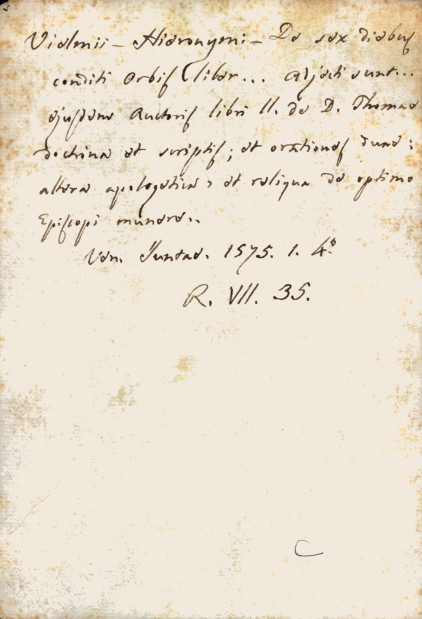 Vielmii - Hieronymi - De sex diebus
conditi orbis liber... adjecti sunt...
ejusdem Auctoris libri II. de D. Thomae
doctrina et scriptis; et orationes duae:
altera apologetica, et reliqua de optimo
Episcopi munere..
Ven. Juntae. 1575. 1. 4º
R. VII. 35.